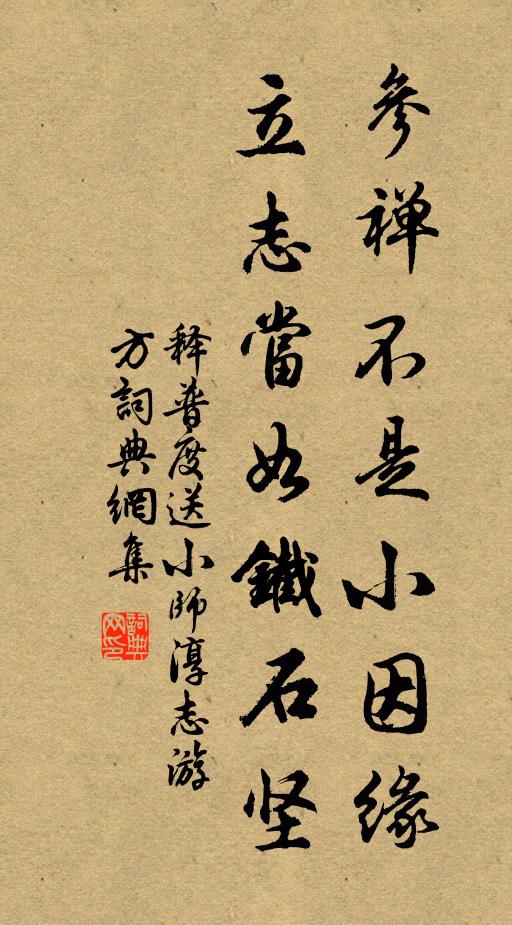 參禅不是小因緣
立志當如鐵石坚
释普度送小師淳志游
方詞典網集
詞典網印